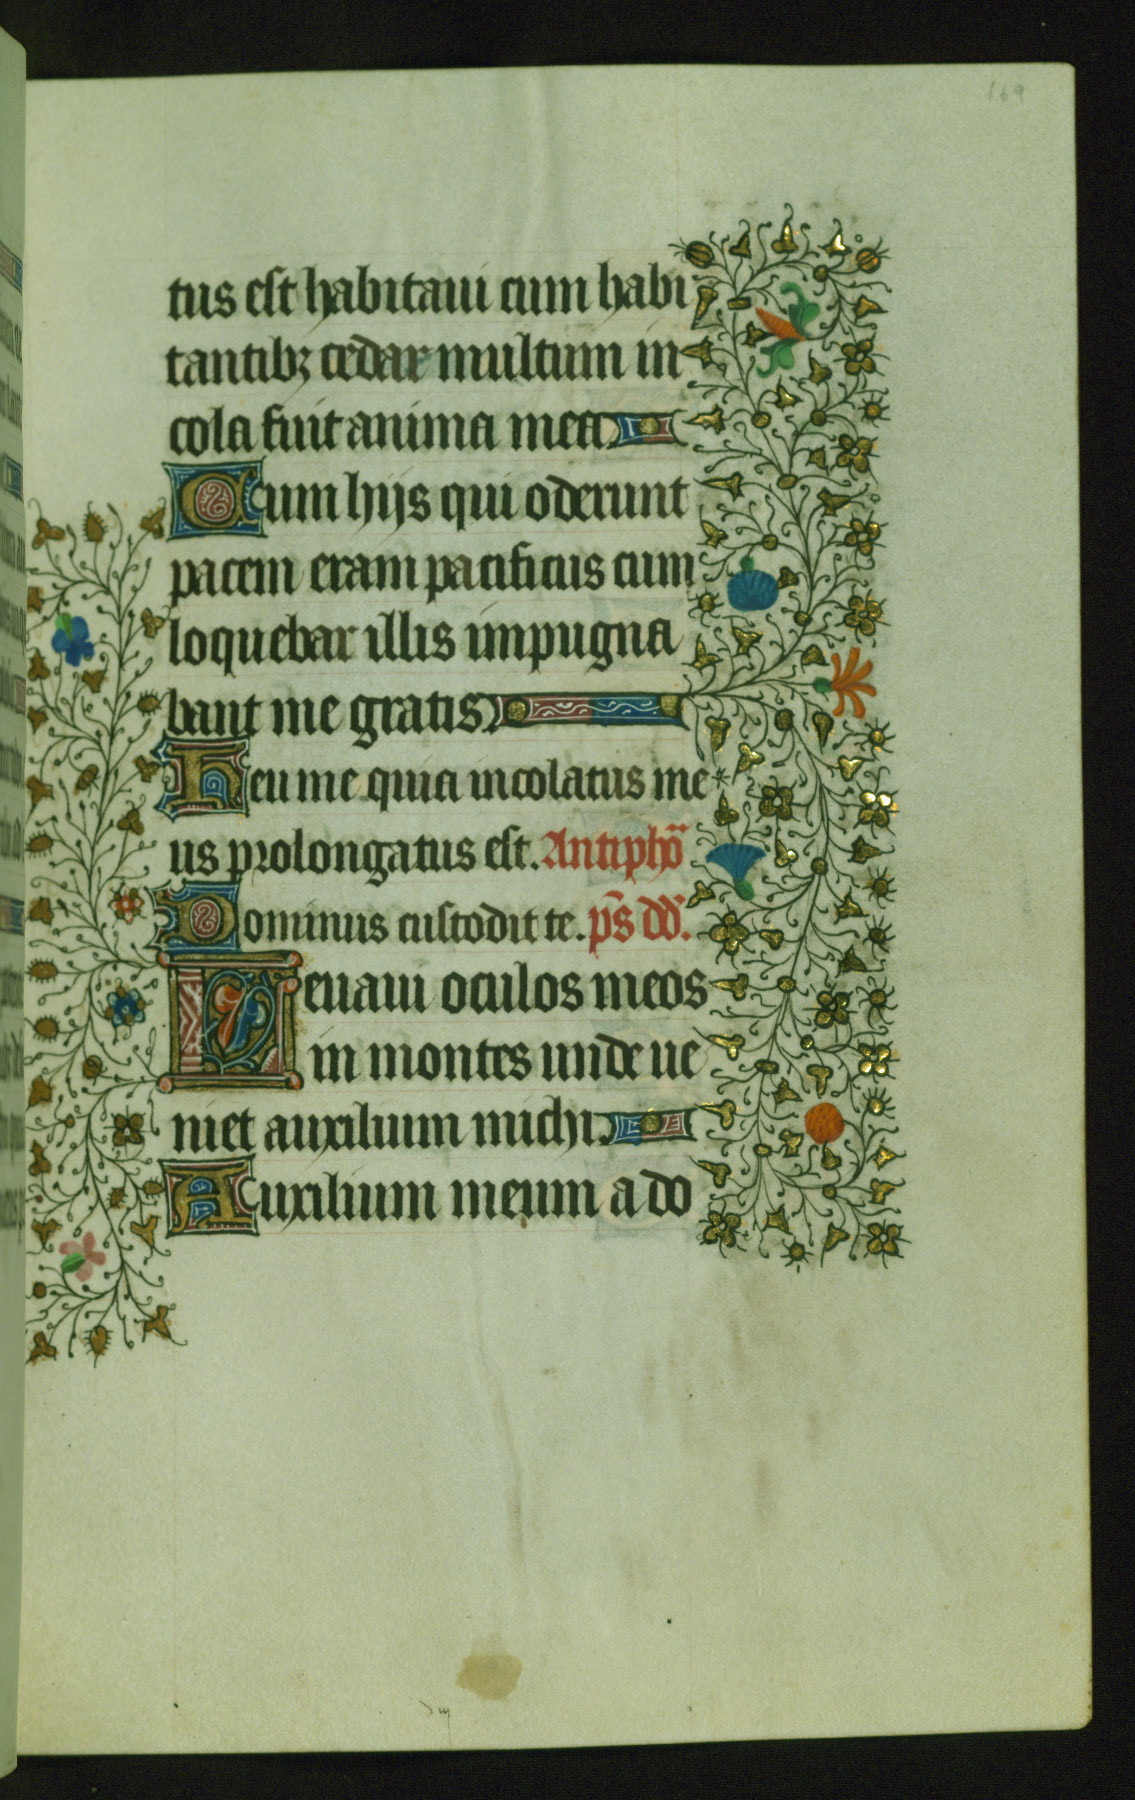 169
tus est habitaui cum habi
tantibꝫ cedar multum in
cola fuit anima mea
Cum hijs qui oderunt
pacem eram pacificus cum
loquebar illis impugna
bant me gratis
Heu me quia incolatus me
us prolongatus est. Antiphō
Dominus custodit te. p̄s dd̄.
Leuaui oculos meos
in montes unde ue
niet auxilium michi.
Auxilium meum a do